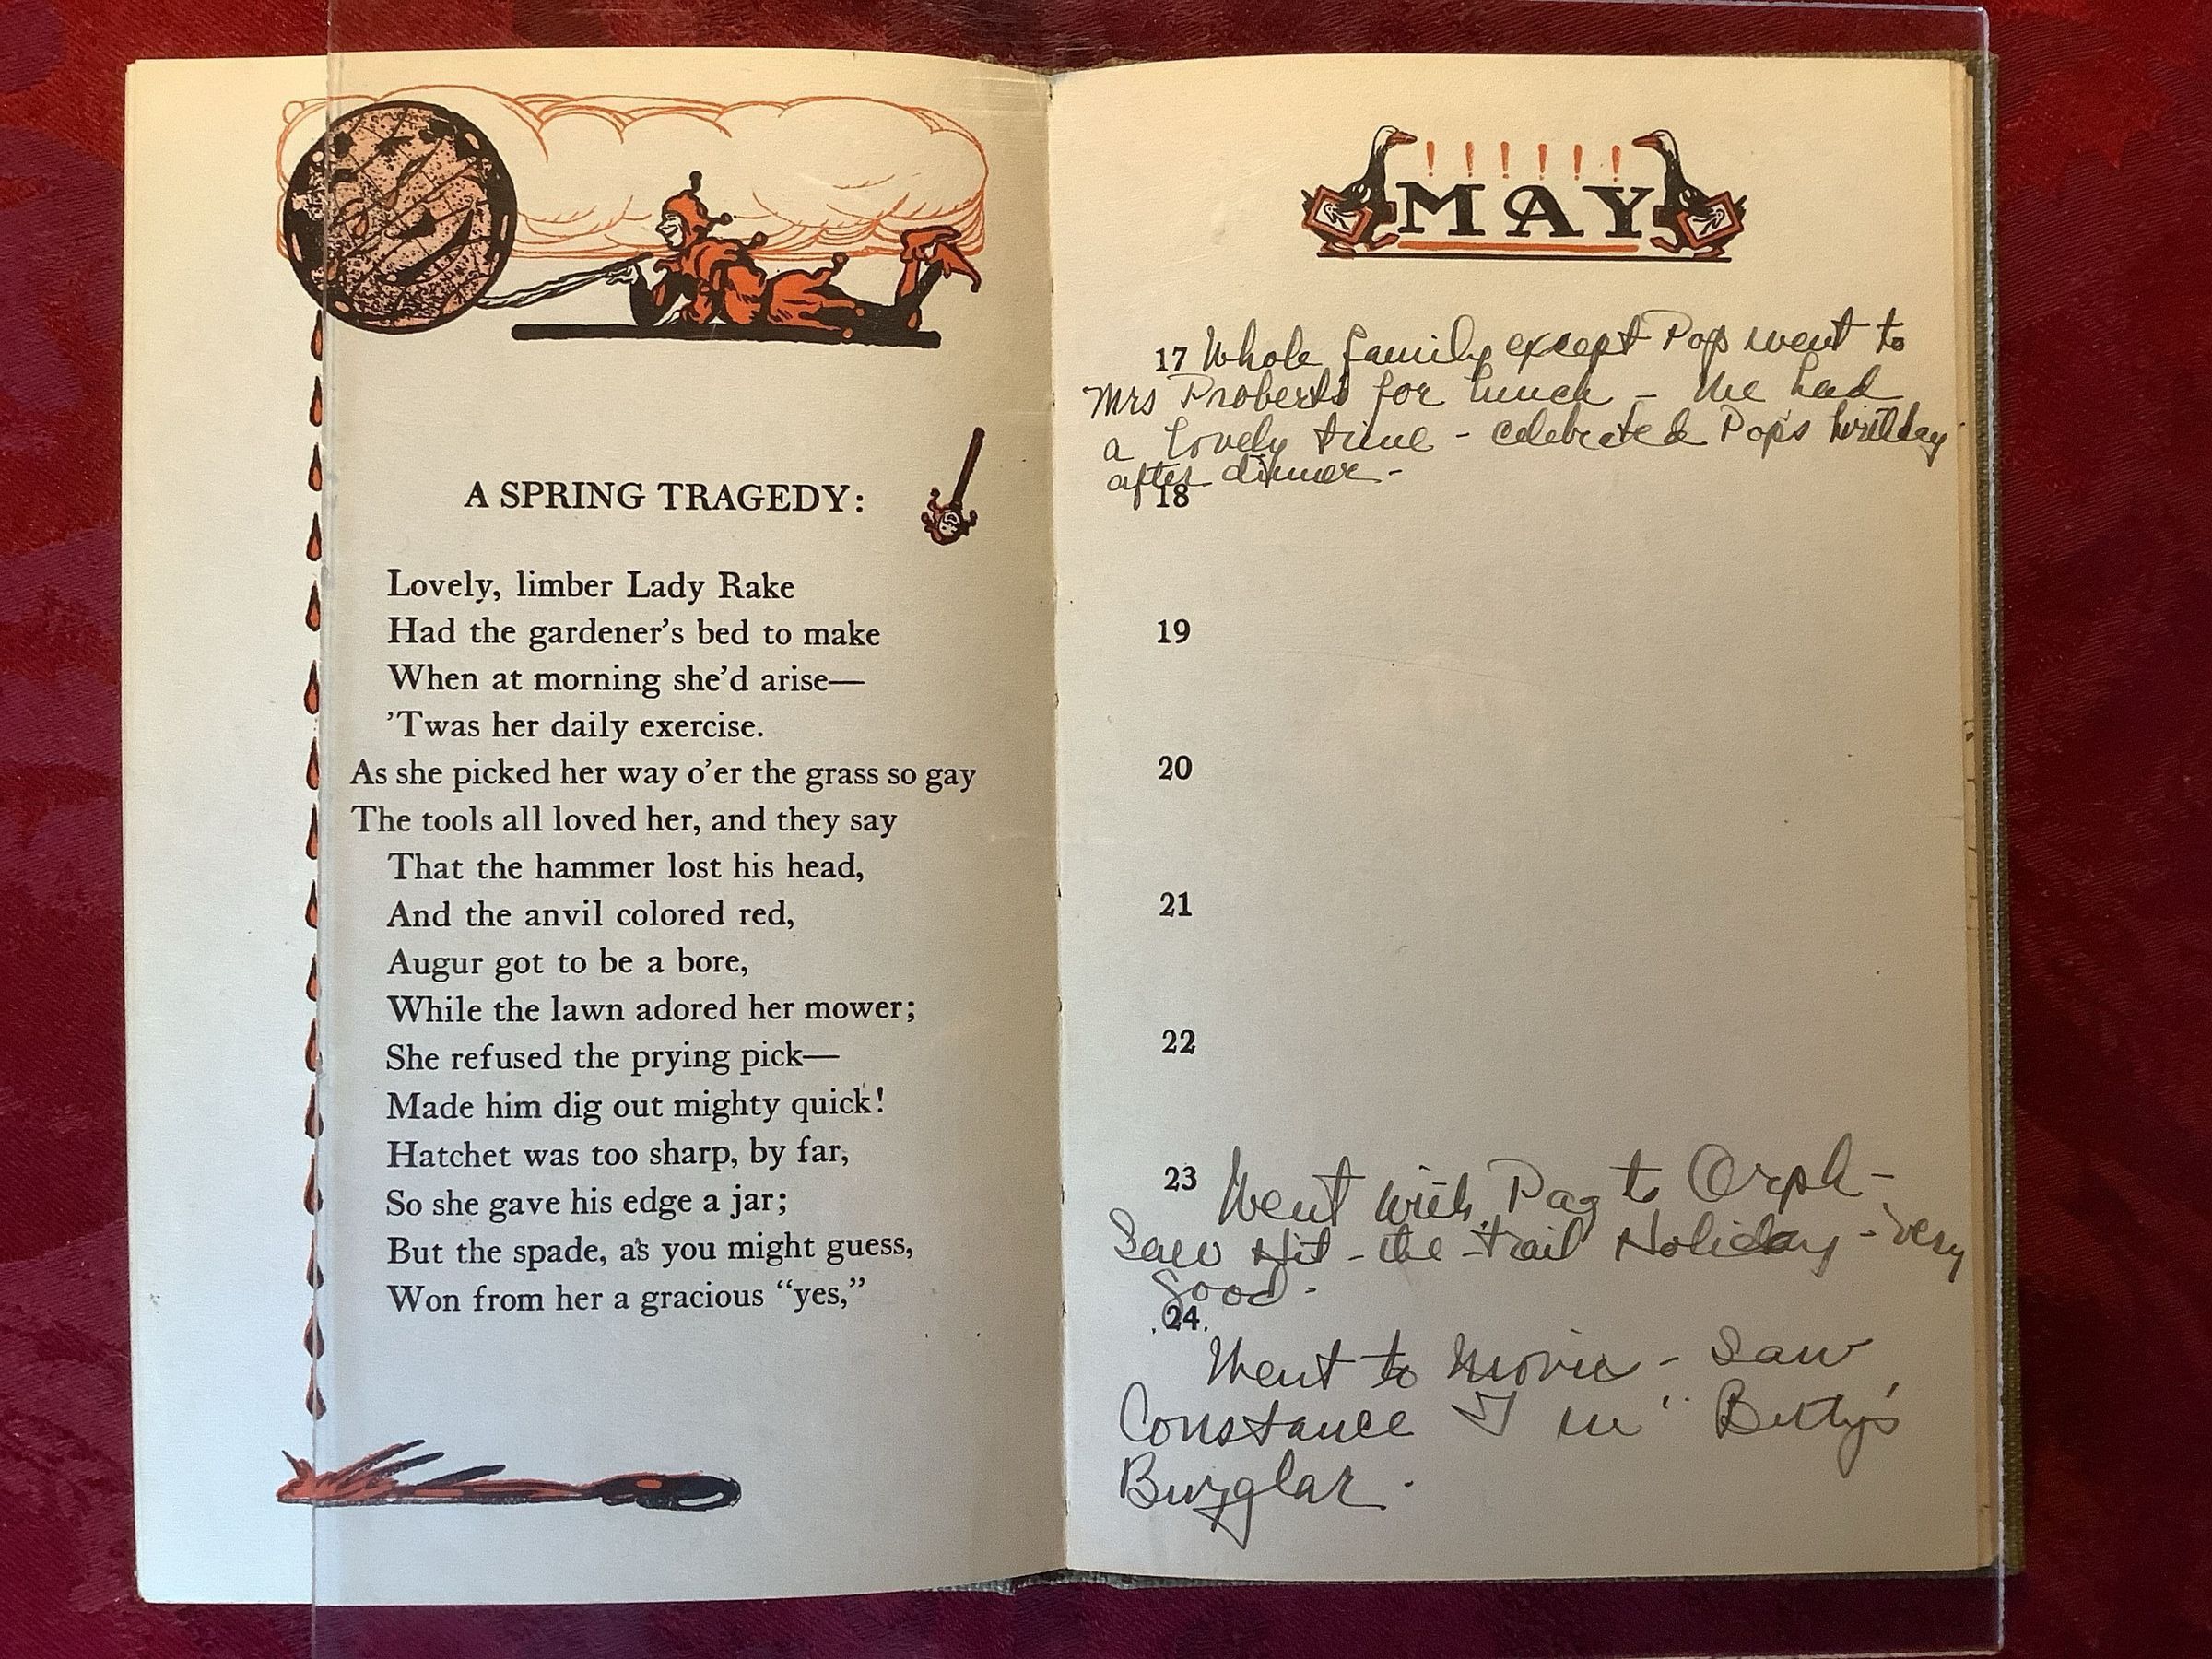 A SPRING TRAGEDY:
Lovely, limber Lady Rake
Had the gardener's bed to make
When at morning she'd arise—
'Twas her daily exercise.
As she picked her way o'er the grass so gay
The tools all loved her, and they say
That the hammer lost his head,
And the anvil colored red,
Augur got to be a bore,
While the lawn adored her mower;
She refused the prying pick—
Made him dig out mighty quick!
Hatchet was too sharp, by far,
So she gave his edge a jar;
But the spade, as you might guess,
Won from her a gracious “yes,”
! ! ! ! ! !
MAY
17 Whole family except Pop went to
Mrs Proberts for lunch - We had
a lovely time - celebrated Pop's birthday
after dinner -
18
19
20
21
22
23 Went with Pag to Orph -
Saw Hit - the - trail Holiday - very
good -
24
Went to Movie - Saw
Constance T in " Betty's
Burglar.